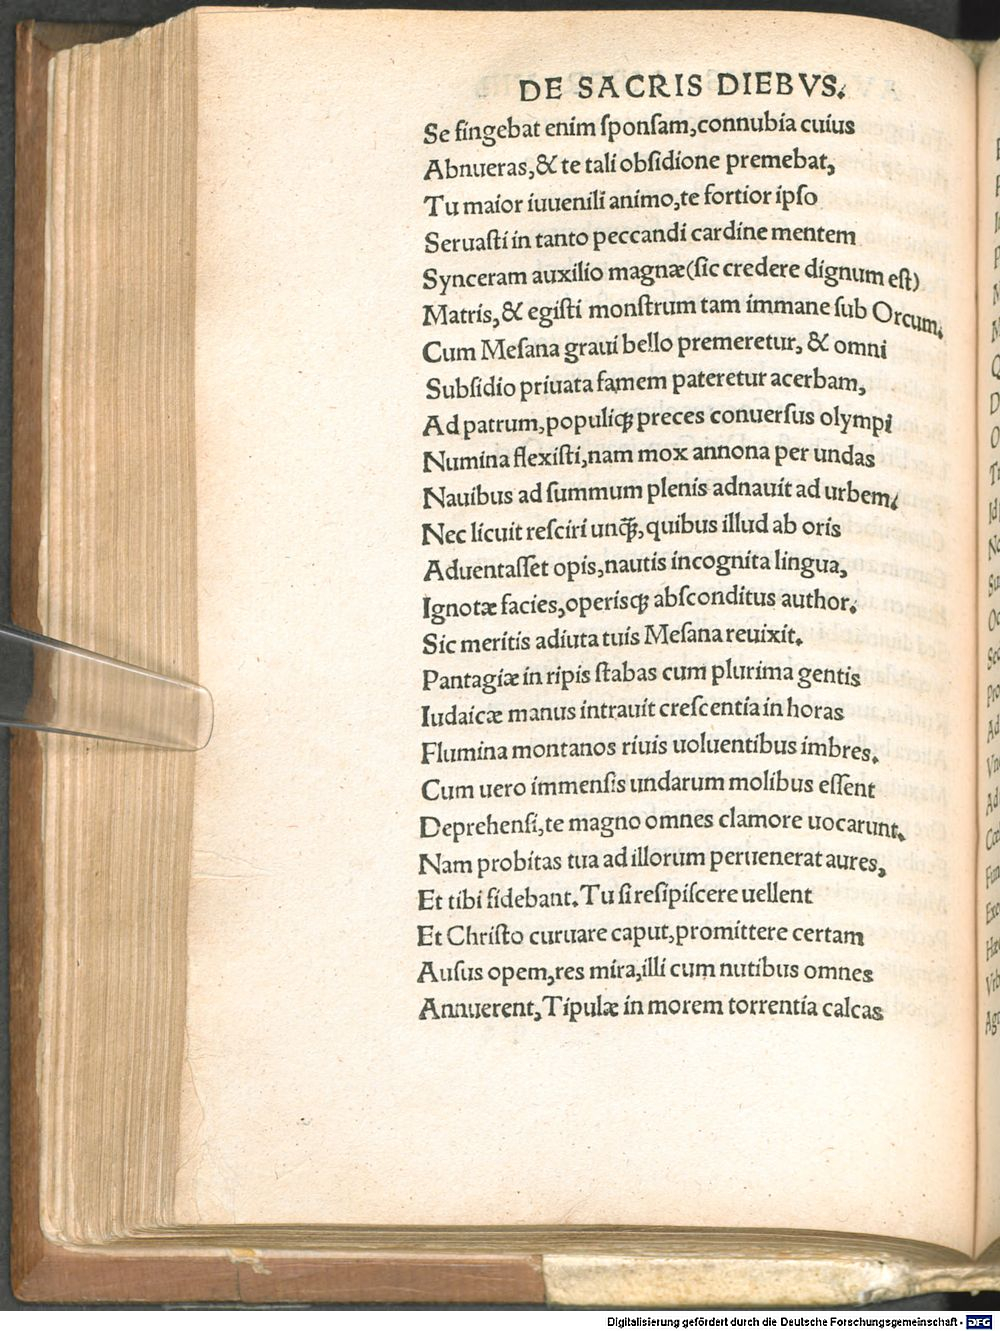 DE SACRIS DIEBVS.
Se fingebat enim ſponſam,connubia cuius
Abnueras,& te tali obſidione premebat,
Tu maior iuuenili animo,te fortior ipſo
Seruaſti in tanto peccandi cardine mentem
Synceram auxilio magnæ(ſic credere dignum eſt)
Matris,& egiſti monſtrum tam immane ſub Orcum.
Cum Meſana graui bello premeretur, & omni
Subſidio priuata famem pateretur acerbam,
Ad patrum,populiqꝫ preces conuerſus olympi
Numina flexiſti,nam mox annona per undas
Nauibus ad ſummum plenis adnauit ad urbem.
Nec licuit reſciri unqꝫ̃,quibus illud ab oris
Aduentaſſet opis,nautis incognita lingua,
Ignotæ facies,operisqꝫ abſconditus author.
Sic meritis adiuta tuis Meſana reuixit.
Pantagiæ in ripis ſtabas cum plurima gentis
Iudaicæ manus intrauit creſcentia in horas
Flumina montanos riuis uoluentibus imbres.
Cum uero immenſis undarum molibus eſſent
Deprehenſi,te magno omnes clamore uocarunt.
Nam probitas tua ad illorum peruenerat aures,
Et tibi fidebant.Tu ſi reſipiſcere uellent
Et Chriſto curuare caput,promittere certam
Auſus opem,res mira,illi cum nutibus omnes
Annuerent,Tipulæ in morem torrentia calcas
Digitalisierung gefördert durch die Deutsche Forschungsgemeinschaft - DFG